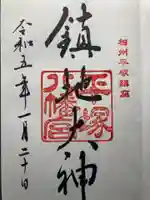 相州平塚鎮座
鎮地大神
平塚八幡宮
令和五年一月二十日